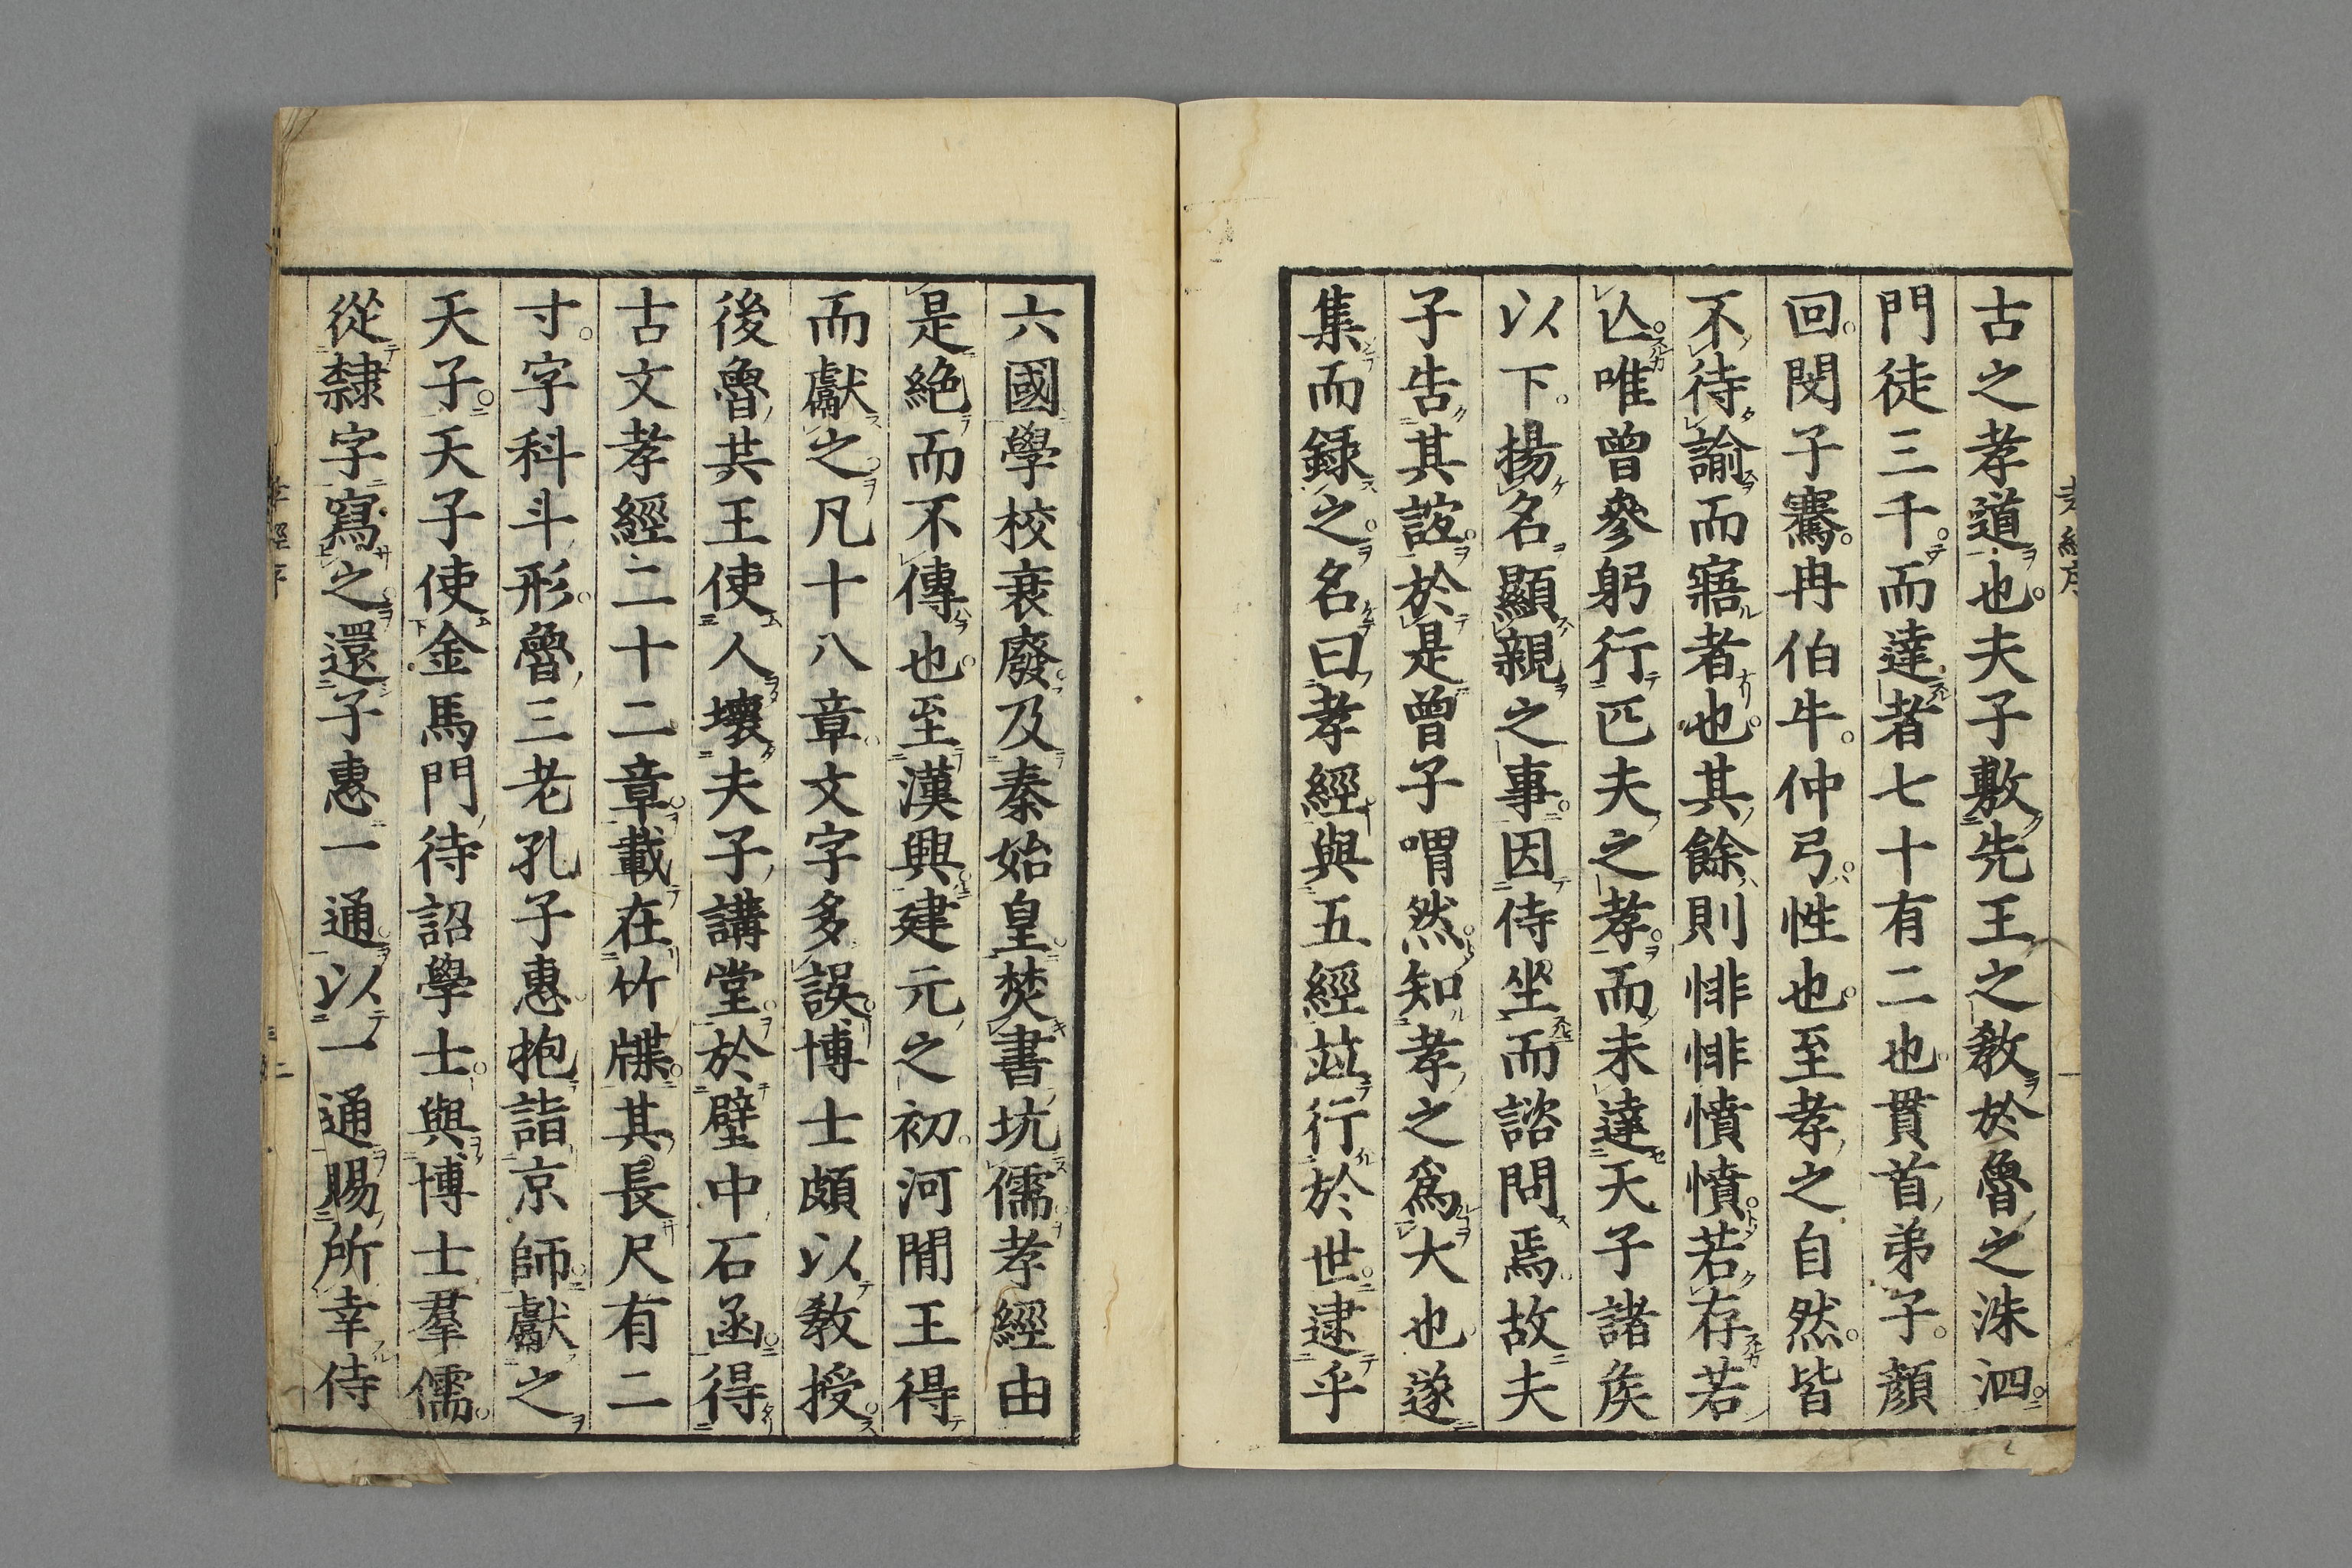 古之孝道也夫子敷先王之教於魯之洙泗
門徒三千而達者七十有二也貫首弟子顔
回閔子騫冉伯牛仲弓性也至孝之自然皆
不待諭而寤者也其餘則悱悱憤憤若存若
亾唯曾參躬行匹夫之孝而未達天子諸矦
以下揚名顯親之事因侍坐而諮問焉故夫
子告其誼於是曾子喟然知孝之爲大也遂
集而録之名曰孝經與五經竝行於世逮乎
六國學校衰廢及秦始皇焚書坑儒孝經由
是絶而不傳也至漢興建元之初河閒王得
而獻之凡十八章文字多誤博士頗以教授
後魯共王使人壞夫子講堂於壁中石函得
古文孝經二十二章載在竹牒其長尺有二
寸字科斗形魯三老孔子惠抱詣京師獻之
天子天子使金馬門待詔學士與博士羣儒
從隸字寫之還子惠一通以一通賜所幸侍